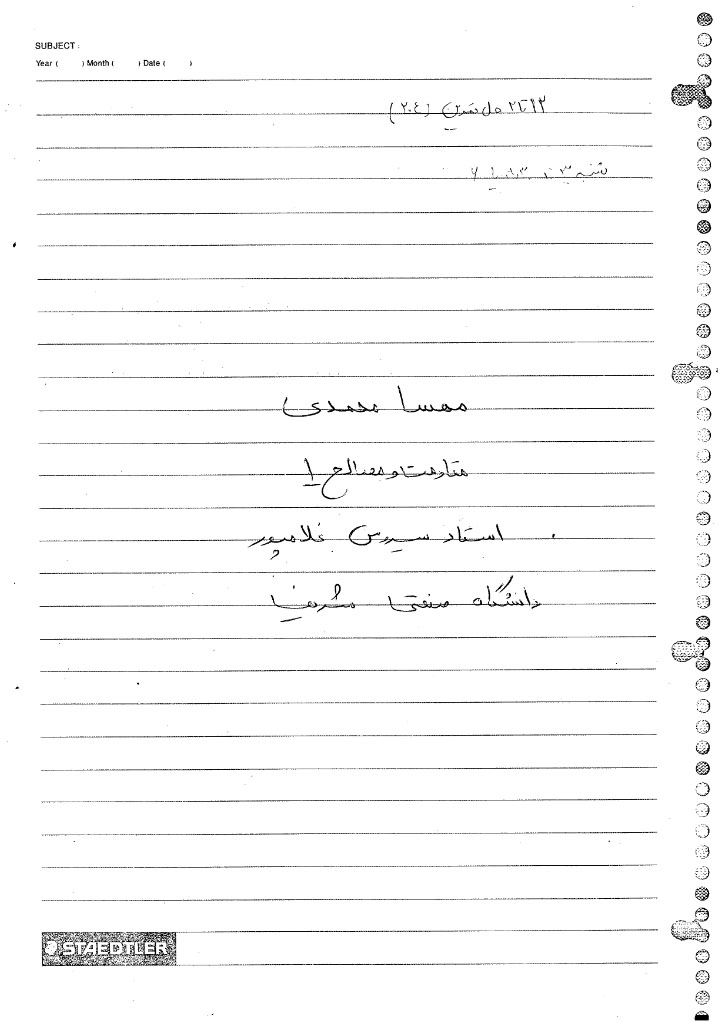 SUBJECT :
Year ( ) Month ( ) Date ( )
۱۲ تا ۱۳ حل تمرین (۲۰٤)
شنبه
مهسا محمدی
مقاومت مصالح ۱
استاد سیروس غلامپور
دانشگاه صنعتی شریف
STAEDTLER